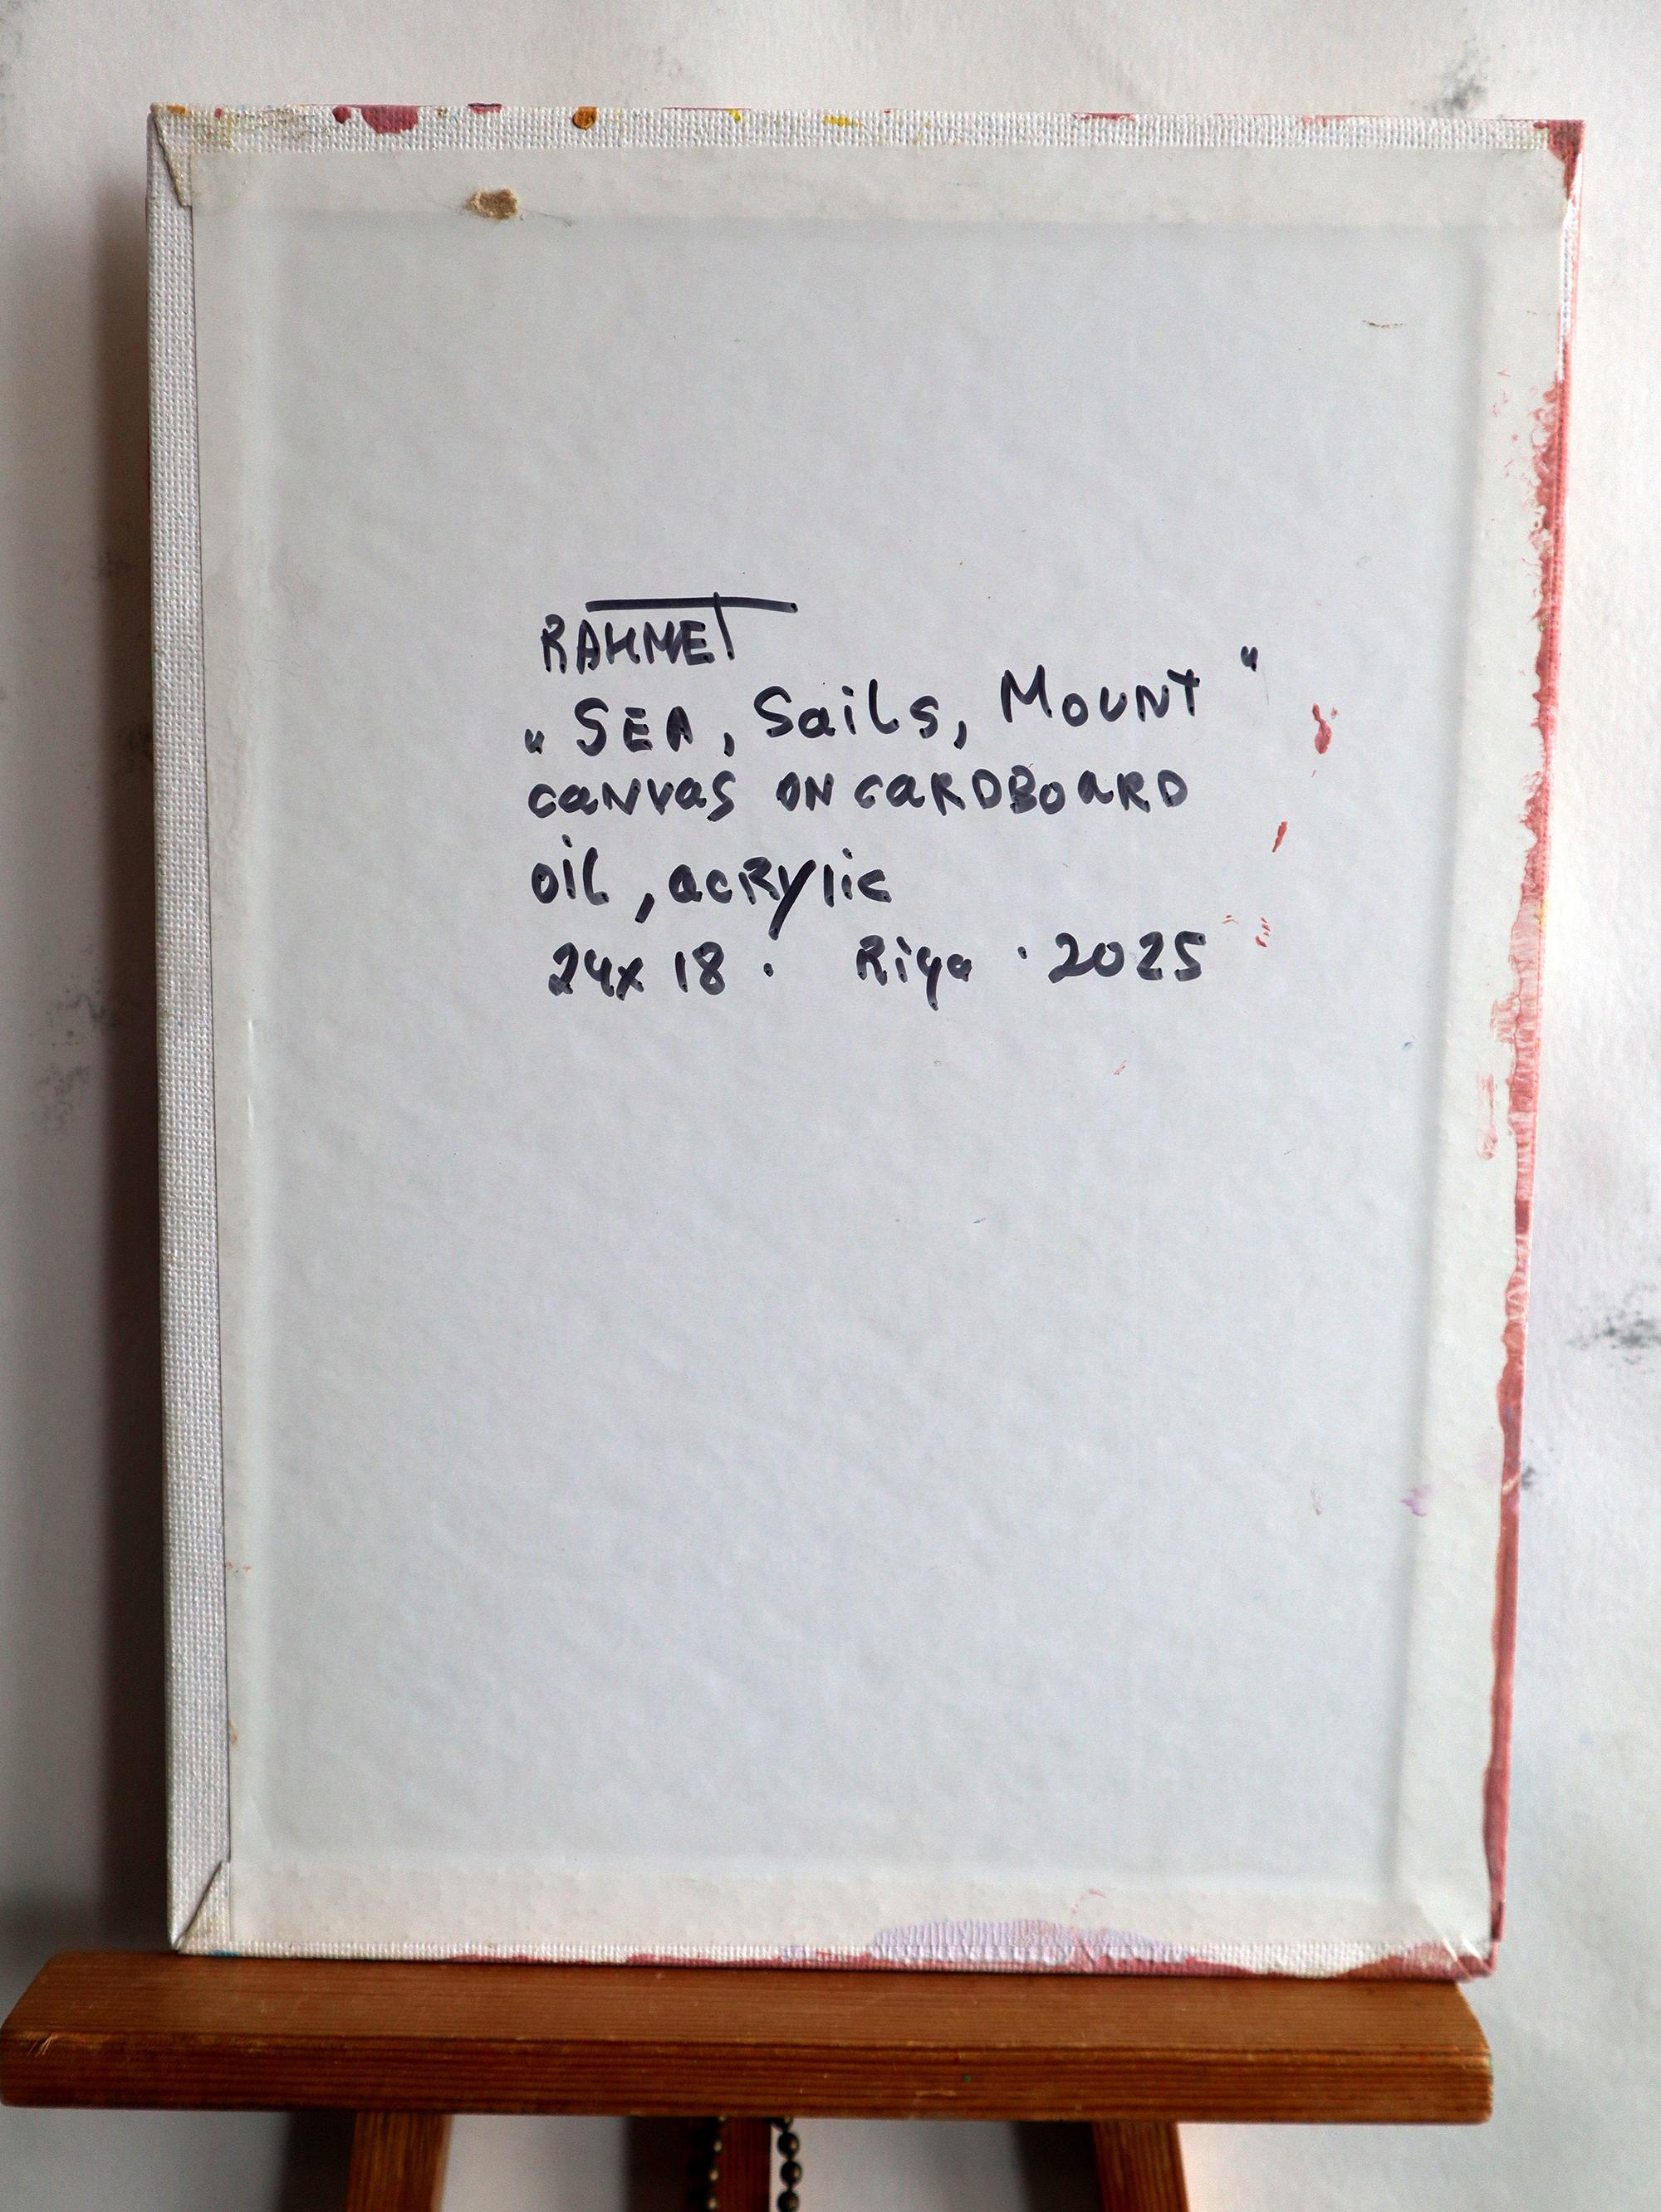 RAHMET
„SEA, Sails, MOUNT“
canvas ON CARDBOARD
oil, acrylic
24x18. Riga · 2025